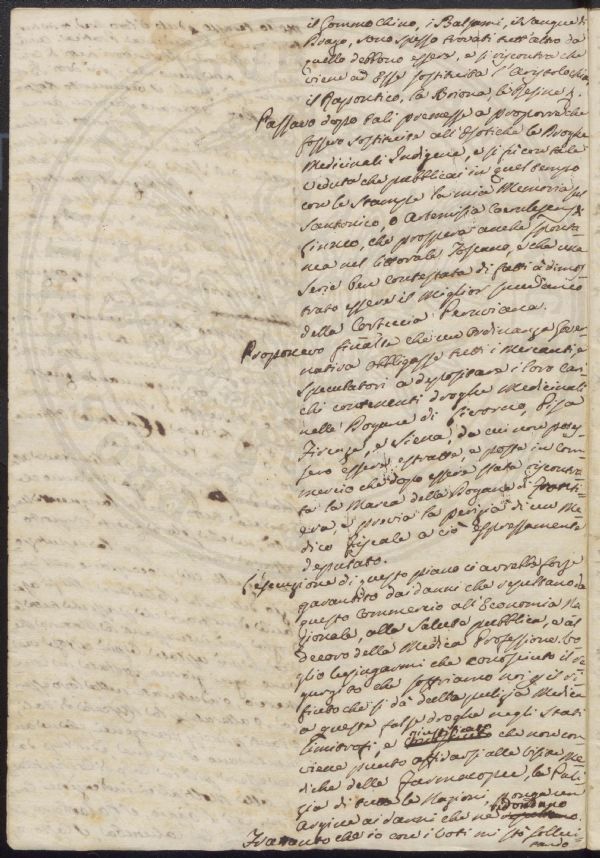 il Gommo Chino, i Balsami, il Sangue di
Drago, sono spesso trovati tutt'altro da
quello debbono essere, e si riscontra che
viene ad Esse sostituita l'Aristolochia
il Rapontico, la Brionia, le Resine &.
Passavo dopo tali premesse a proporre che
fossero sostituite all'Esotiche le Droghe
Medicinali Indigene, e si fu con tale
veduta che pubblicai in quel tempo
con le stampe la mia Memoria sul
Santonico, o Artemisia Coerulescens di
Linneo, che prospera anche sponta-
nea nel littorale Toscano, e che una
serie ben contestata di fatti à dimo-
strato essere il miglior succedaneo
della Corteccia Peruviana.
Proponevo finalmente che un'Ordinanza Gover-
nativa obbligasse tutti i Mercanti e
speculatori a depositare i loro cari-
chi contenenti droghe Medicinali
nelle Dogane di Livorno, Pisa
Firenze, e Siena, da cui non potes-
sero essere estratte, e poste in com-
mercio che dopo essere stata riscontra-
ta la Marca della Dogana di
e previa la perizia di un Me-
dico Fiscale a ciò espressamente
deputato.
L'esecuzione di questo piano ci avrebbe forse
garantito dai danni che resultano da
questo Commercio all'Economia Na-
zionale, alla Salute pubblica, e al
decoro della Medica Professione. Vo-
glio lusingarmi che conosciuto il de-
che soffriamo noi per il ri-
fiuto che si dà della pulizia Medica
a queste false droghe negli Stati
limitrofi, e giustificato che non con-
viene punto affidarsi alle visite Me-
diche delle Farmacopee, la Puli-
zia di tutte le Nazioni, ponga un
Argine ai danni che ne ridondano
Frattanto che io con i voti mi sto solleci-
tando